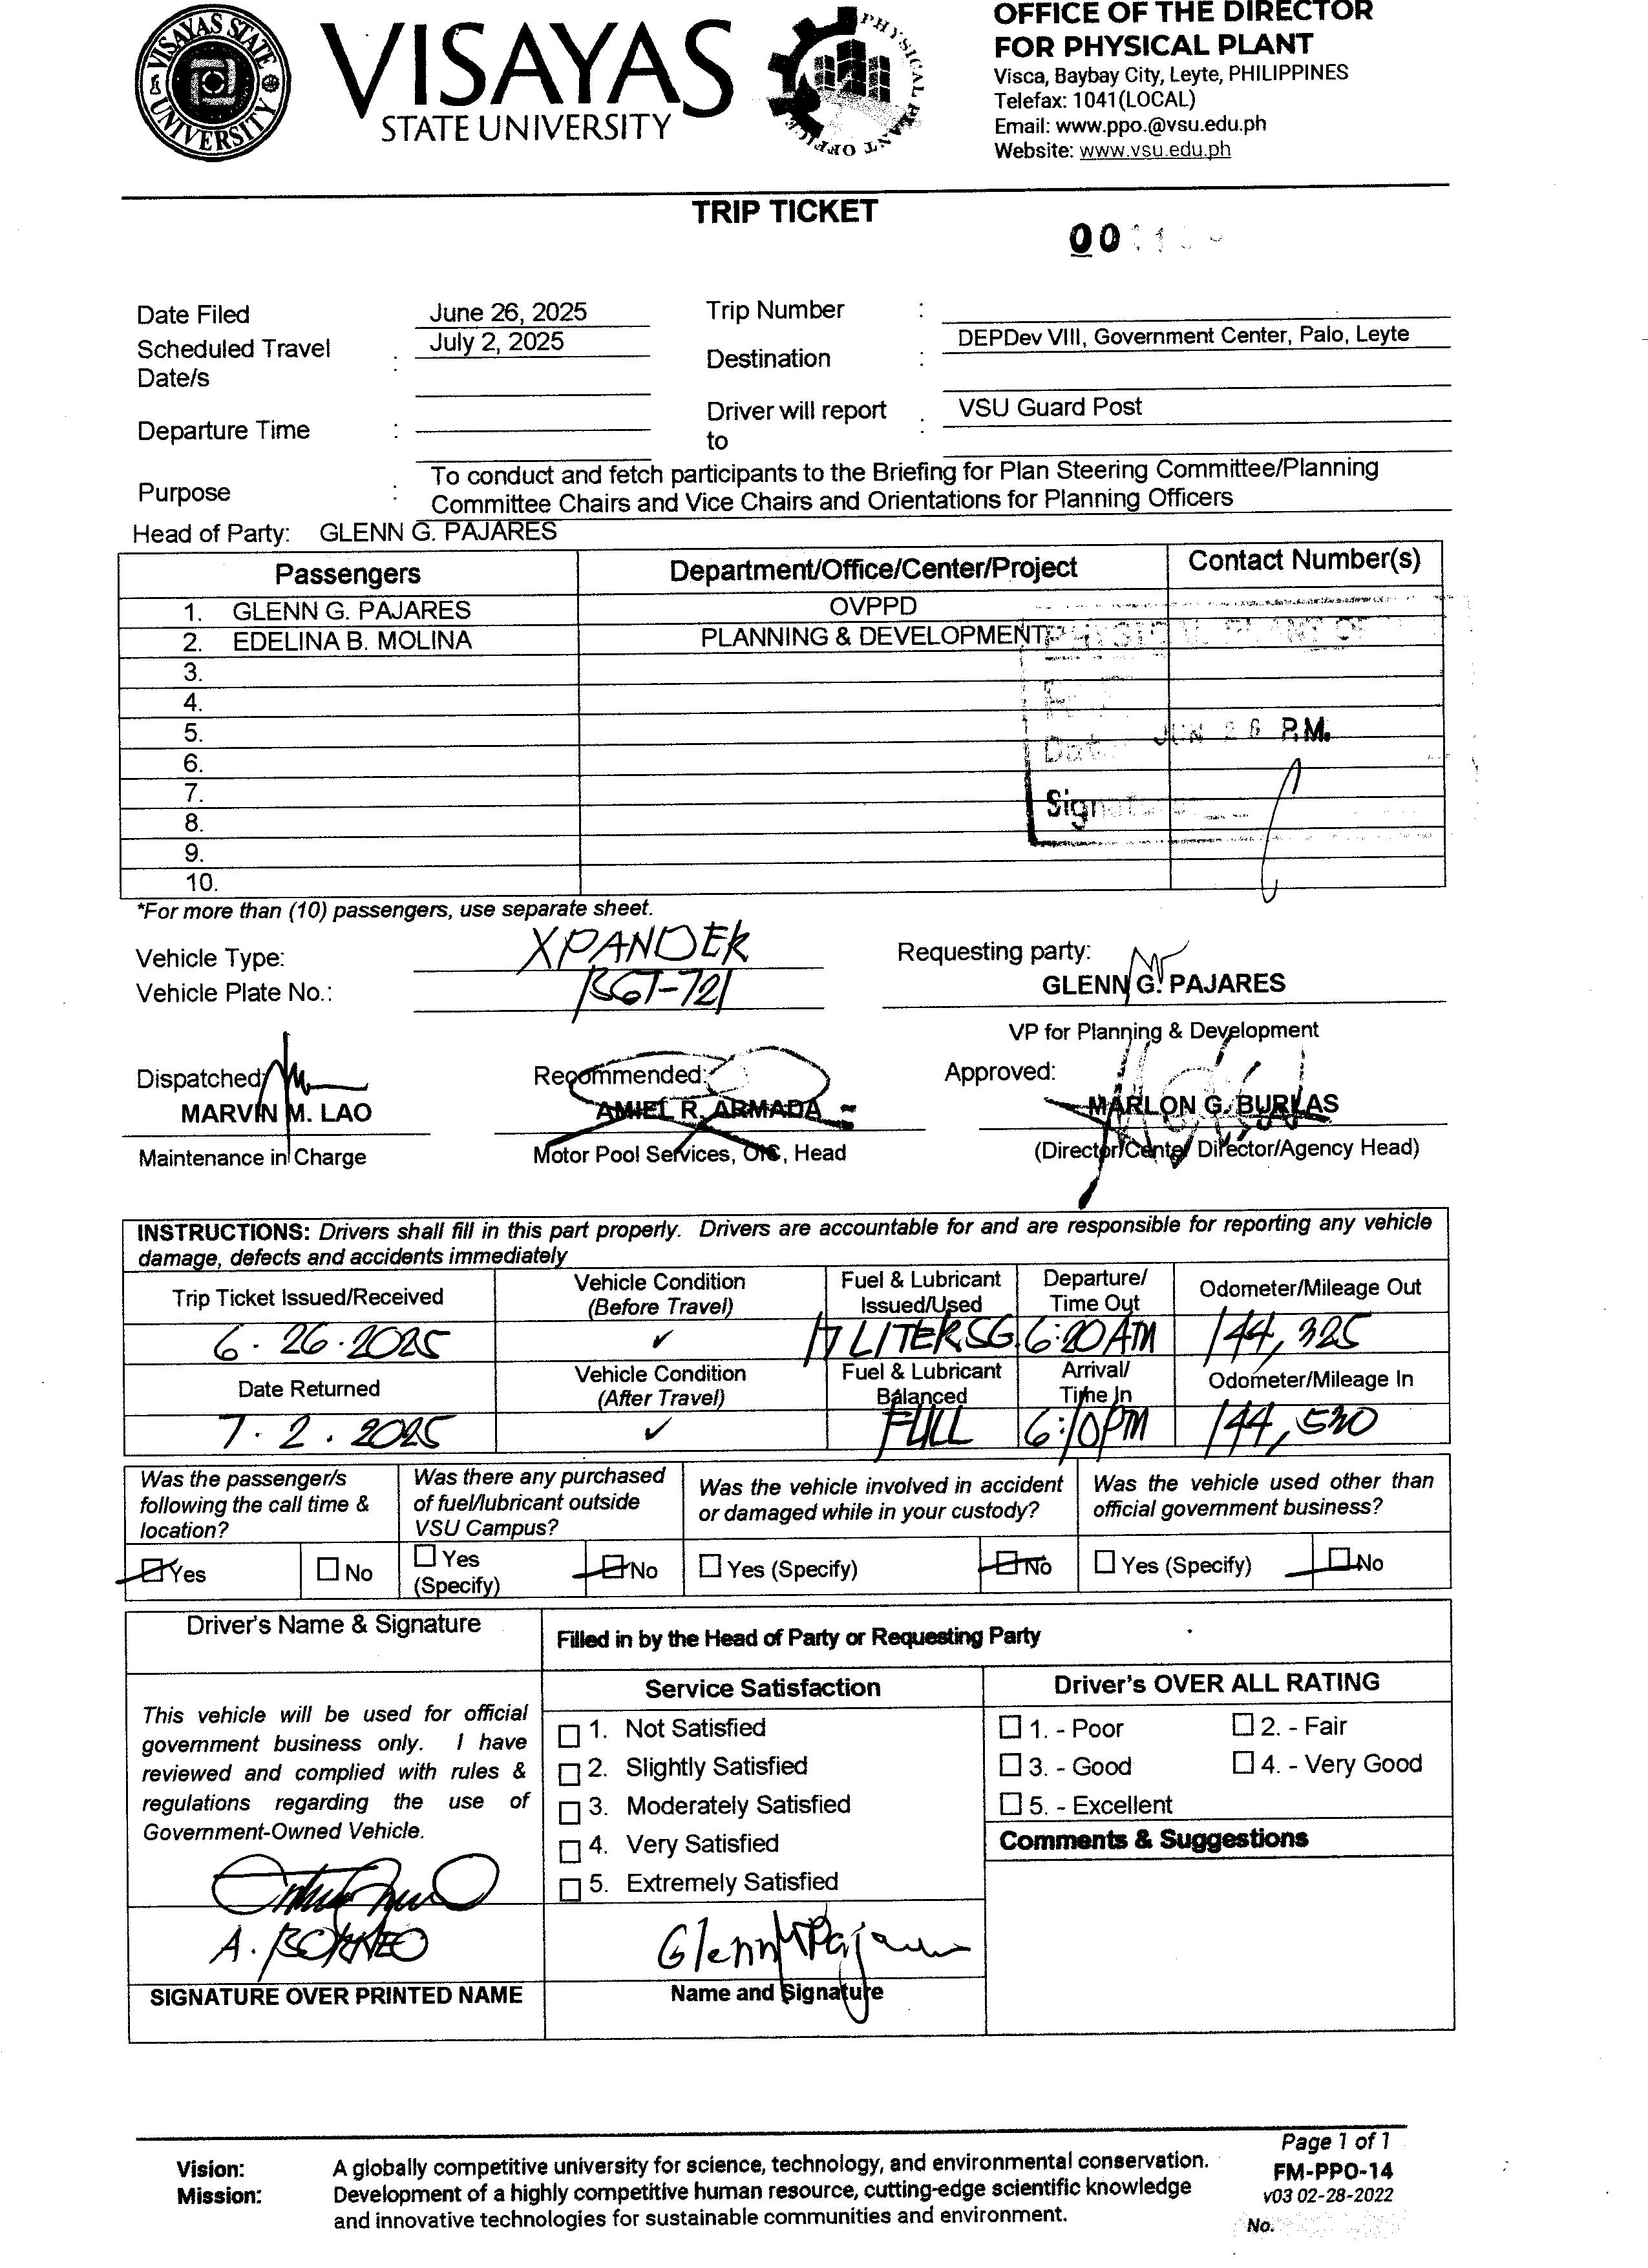 VISAYAS STATE UNIVERSITY
VISAYAS
STATE UNIVERSITY
PHYSICAL PLANT OFFICE
OFFICE OF THE DIRECTOR
FOR PHYSICAL PLANT
Visca, Baybay City, Leyte, PHILIPPINES
Telefax: 1041(LOCAL)
Email: www.ppo.@vsu.edu.ph
Website: www.vsu.edu.ph
TRIP TICKET
Date Filed June 26, 2025 Trip Number :
Scheduled Travel Date/s : July 2, 2025 Destination : DEPDev VIII, Government Center, Palo, Leyte
Departure Time : Driver will report to : VSU Guard Post
Purpose : To conduct and fetch participants to the Briefing for Plan Steering Committee/Planning
Committee Chairs and Vice Chairs and Orientations for Planning Officers
Head of Party: GLENN G. PAJARES
Passengers Department/Office/Center/Project Contact Number(s)
1. GLENN G. PAJARES OVPPD
2. EDELINA B. MOLINA PLANNING & DEVELOPMENT
3.
4.
5. JUN 26 P.M.
6. Date
7.
8. Signature
9.
10.
*For more than (10) passengers, use separate sheet.
Vehicle Type: XPANDER Requesting party:
Vehicle Plate No.: GLENN G. PAJARES
VP for Planning & Development
Dispatched: Recommended: Approved:
MARVIN M. LAO AMIEL R. ARMADA MARLON G. BURLAS
Maintenance in Charge Motor Pool Services, OIC, Head (Director/Center Director/Agency Head)
INSTRUCTIONS: Drivers shall fill in this part properly. Drivers are accountable for and are responsible for reporting any vehicle
damage, defects and accidents immediately
Trip Ticket Issued/Received Vehicle Condition (Before Travel) Fuel & Lubricant Issued/Used Departure/ Time Out Odometer/Mileage Out
6.26.2025 ✓ 17 LITERS G. 6:20 AM 144,325
Date Returned Vehicle Condition (After Travel) Fuel & Lubricant Balanced Arrival/ Time In Odometer/Mileage In
7.2.2025 ✓ FULL 6:10 PM 144,520
Was the passenger/s following the call time & location? Was there any purchased of fuel/lubricant outside VSU Campus? Was the vehicle involved in accident or damaged while in your custody? Was the vehicle used other than official government business?
Yes No Yes (Specify) No Yes (Specify) No Yes (Specify) No
Driver's Name & Signature Filled in by the Head of Party or Requesting Party
Service Satisfaction Driver's OVER ALL RATING
This vehicle will be used for official
government business only. I have
reviewed and complied with rules &
regulations regarding the use of
Government-Owned Vehicle.
1. Not Satisfied
2. Slightly Satisfied
3. Moderately Satisfied
4. Very Satisfied
5. Extremely Satisfied
1. - Poor 2. - Fair
3. - Good 4. - Very Good
5. - Excellent
Comments & Suggestions
A. BORNEO Glenn Pajares
SIGNATURE OVER PRINTED NAME Name and Signature
Page 1 of 1
FM-PPO-14
v03 02-28-2022
No.
Vision: A globally competitive university for science, technology, and environmental conservation.
Mission: Development of a highly competitive human resource, cutting-edge scientific knowledge
and innovative technologies for sustainable communities and environment.